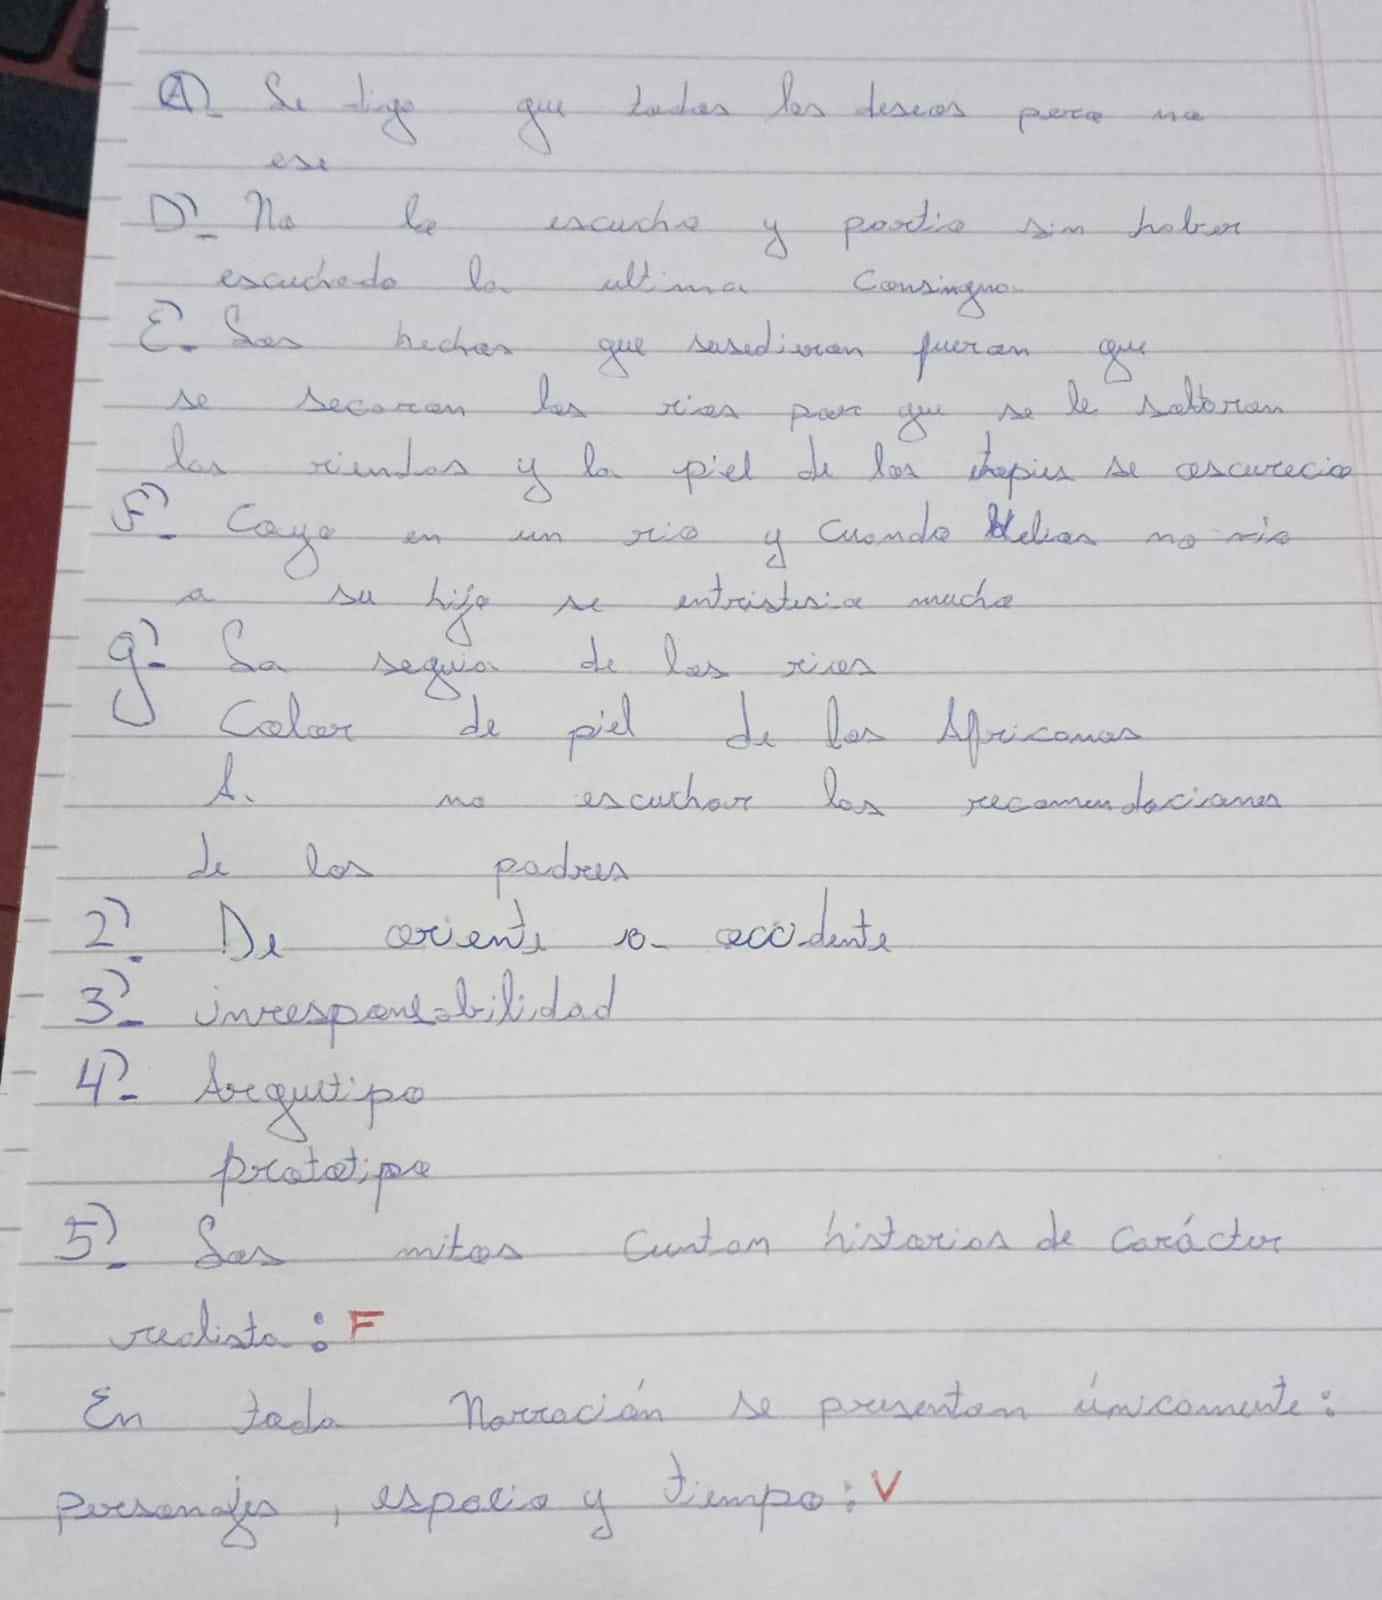 A)- Se digo que todos los deseos pero no
ese
D)- No lo escucho y partio sin haber
escuchado la ultima Consingna
E)- Los hechos que susedieron fueron que
se secaron los rios por que se le soltaron
las riendas y la piel de los etiopies se oscurecio
F)- Cayo en un rio y Cuando Helios no vio
a su hijo se entristesio mucho
g)- La seguia de los rios
Color de piel de los Africanos
A. no escuchar las recomendaciones
de los padres
2)- De oriente a occidente
3)- inresponsabilidad
4)- Arquetipo
prototipo
5)- Los mitos Cuntan historias de Carácter
realista: F
En toda Narración se presentan únicamente:
personajes, espacio y tiempo: V